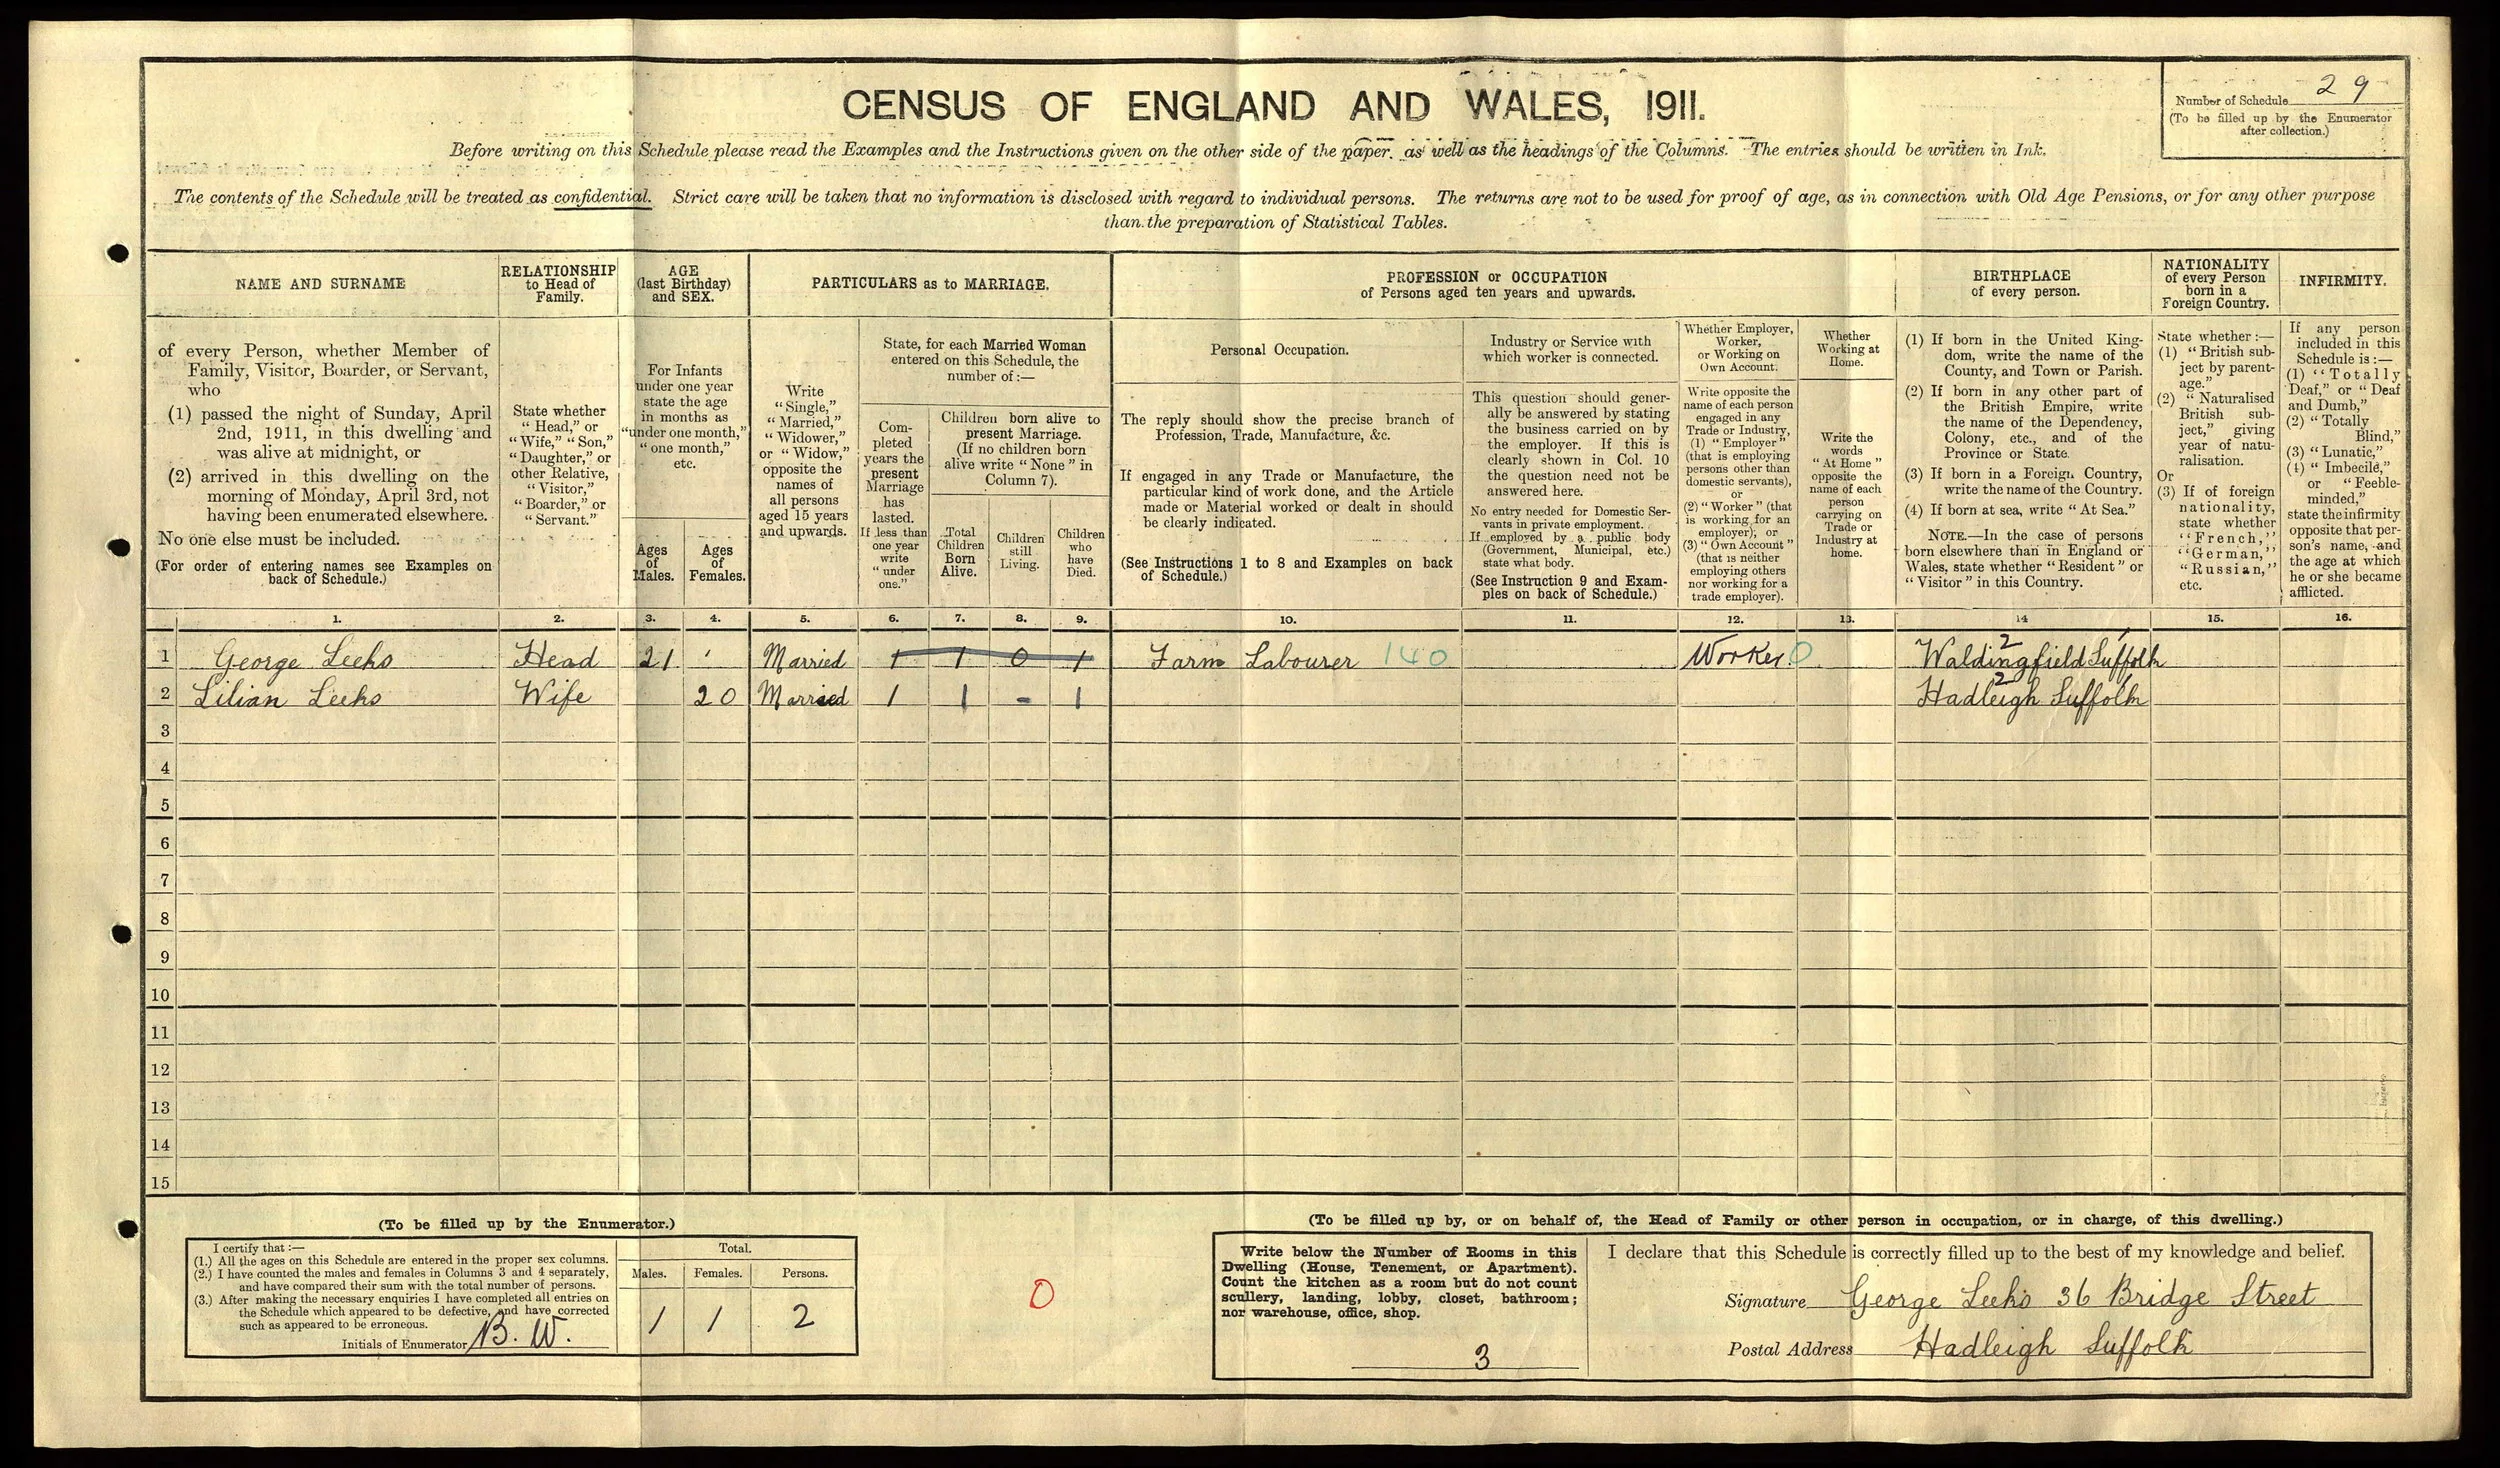 CENSUS OF ENGLAND AND WALES, 1911.
Number of Schedule 29
(To be filled up by the Enumerator
after collection.)
Before writing on this Schedule please read the Examples and the Instructions given on the other side of the paper, as well as the headings of the Columns. The entries should be written in Ink.
The contents of the Schedule will be treated as confidential. Strict care will be taken that no information is disclosed with regard to individual persons. The returns are not to be used for proof of age, as in connection with Old Age Pensions, or for any other purpose
than the preparation of Statistical Tables.
NAME AND SURNAME
RELATIONSHIP
to Head of
Family.
AGE
(last Birthday)
and SEX.
PARTICULARS as to MARRIAGE.
PROFESSION or OCCUPATION
of Persons aged ten years and upwards.
BIRTHPLACE
of every person.
NATIONALITY
of every Person
born in a
Foreign Country.
INFIRMITY.
of every Person, whether Member of
Family, Visitor, Boarder, or Servant,
who
(1) passed the night of Sunday, April
2nd, 1911, in this dwelling and
was alive at midnight, or
(2) arrived in this dwelling on the
morning of Monday, April 3rd, not
having been enumerated elsewhere.
No one else must be included.
(For order of entering names see Examples on
back of Schedule.)
State whether
"Head," or
"Wife," "Son,"
"Daughter," or
other Relative,
"Visitor,"
"Boarder," or
"Servant."
For Infants
under one year
state the age
in months as
"under one month,"
"one month,"
etc.
Ages
of
Males.
Ages
of
Females.
Write
"Single,"
"Married,"
"Widower,"
or "Widow,"
opposite the
names of
all persons
aged 15 years
and upwards.
State, for each Married Woman
entered on this Schedule, the
number of:—
Com-
pleted
years the
present
Marriage
has
lasted.
If less than
one year
write
"under
one."
Children born alive to
present Marriage.
(If no children born
alive write "None" in
Column 7).
Total
Children
Born
Alive.
Children
still
Living.
Children
who
have
Died.
Personal Occupation.
The reply should show the precise branch of
Profession, Trade, Manufacture, &c.
If engaged in any Trade or Manufacture, the
particular kind of work done, and the Article
made or Material worked or dealt in should
be clearly indicated.
(See Instructions 1 to 8 and Examples on back
of Schedule.)
Industry or Service with
which worker is connected.
This question should gener-
ally be answered by stating
the business carried on by
the employer. If this is
clearly shown in Col. 10
the question need not be
answered here.
No entry needed for Domestic Ser-
vants in private employment.
If employed by a public body
(Government, Municipal, etc.)
state what body.
(See Instruction 9 and Exam-
ples on back of Schedule.)
Whether Employer,
Worker,
or Working on
Own Account.
Write opposite the
name of each person
engaged in any
Trade or Industry,
(1) "Employer"
(that is employing
persons other than
domestic servants),
or
(2) "Worker" (that
is working for an
employer); or
(3) "Own Account"
(that is neither
employing others
nor working for a
trade employer).
Whether
Working at
Home.
Write the
words
"At Home"
opposite the
name of each
person
carrying on
Trade or
Industry at
home.
(1) If born in the United King-
dom, write the name of the
County, and Town or Parish.
(2) If born in any other part of
the British Empire, write
the name of the Dependency,
Colony, etc., and of the
Province or State.
(3) If born in a Foreign Country,
write the name of the Country.
(4) If born at sea, write "At Sea."
NOTE.—In the case of persons
born elsewhere than in England or
Wales, state whether "Resident" or
"Visitor" in this Country.
State whether:—
(1) "British sub-
ject by parent-
age."
(2) "Naturalised
British sub-
ject," giving
year of natu-
ralisation.
Or
(3) If of foreign
nationality,
state whether
"French,"
"German,"
"Russian,"
etc.
If any person
included in this
Schedule is:—
(1) "Totally
Deaf," or "Deaf
and Dumb,"
(2) "Totally
Blind,"
(3) "Lunatic,"
(4) "Imbecile,"
or "Feeble-
minded,"
state the infirmity
opposite that per-
son's name, and
the age at which
he or she became
afflicted.
1. 2. 3. 4. 5. 6. 7. 8. 9. 10. 11. 12. 13. 14 15. 16.
1 George Leeks Head 21 Married 1 1 0 1 Farm Labourer 140 Worker 0 Waldingfield Suffolk 2
2 Lilian Leeks Wife 20 Married 1 1 - 1 Hadleigh Suffolk 2
3
4
5
6
7
8
9
10
11
12
13
14
15
(To be filled up by the Enumerator.)
I certify that:—
(1.) All the ages on this Schedule are entered in the proper sex columns.
(2.) I have counted the males and females in Columns 3 and 4 separately,
and have compared their sum with the total number of persons.
(3.) After making the necessary enquiries I have completed all entries on
the Schedule which appeared to be defective, and have corrected
such as appeared to be erroneous.
Initials of Enumerator B. W.
Total.
Males. Females. Persons.
1 1 2
0
(To be filled up by, or on behalf of, the Head of Family or other person in occupation, or in charge, of this dwelling.)
Write below the Number of Rooms in this
Dwelling (House, Tenement, or Apartment).
Count the kitchen as a room but do not count
scullery, landing, lobby, closet, bathroom;
nor warehouse, office, shop.
3
I declare that this Schedule is correctly filled up to the best of my knowledge and belief.
Signature George Leeks 36 Bridge Street
Postal Address Hadleigh Suffolk